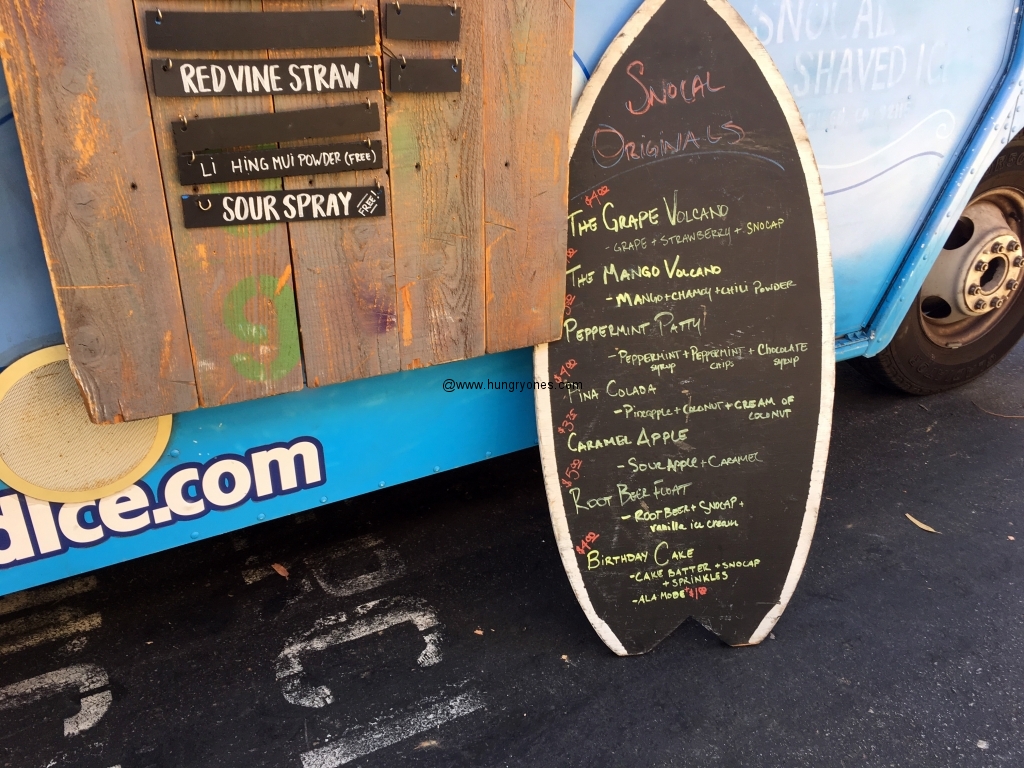 RED VINE STRAW
LI HING MUI POWDER (FREE)
SOUR SPRAY FREE!
dice.com
SNOCAL
SHAVED IC
SNOCAL
ORIGINALS
$4.00
THE GRAPE VOLCANO
- GRAPE + STRAWBERRY + SNOCAP
THE MANGO VOLCANO
- MANGO + CHAMOY + CHILI POWDER
PEPPERMINT PATTY!
- PEPPERMINT SYRUP + PEPPERMINT CHIPS + CHOCOLATE SYRUP
PINA COLADA
- PINEAPPLE + COCONUT + CREAM OF
COCONUT
CARAMEL APPLE
- SOUR APPLE + CARAMEL
$5.00
ROOT BEER FLOAT
- ROOT BEER + SNOCAP +
vanilla ice cream
$4.00
BIRTHDAY CAKE
- CAKE BATTER + SNOCAP
+ SPRINKLES
- ALA MODE + $1.00
@www.hungryones.com